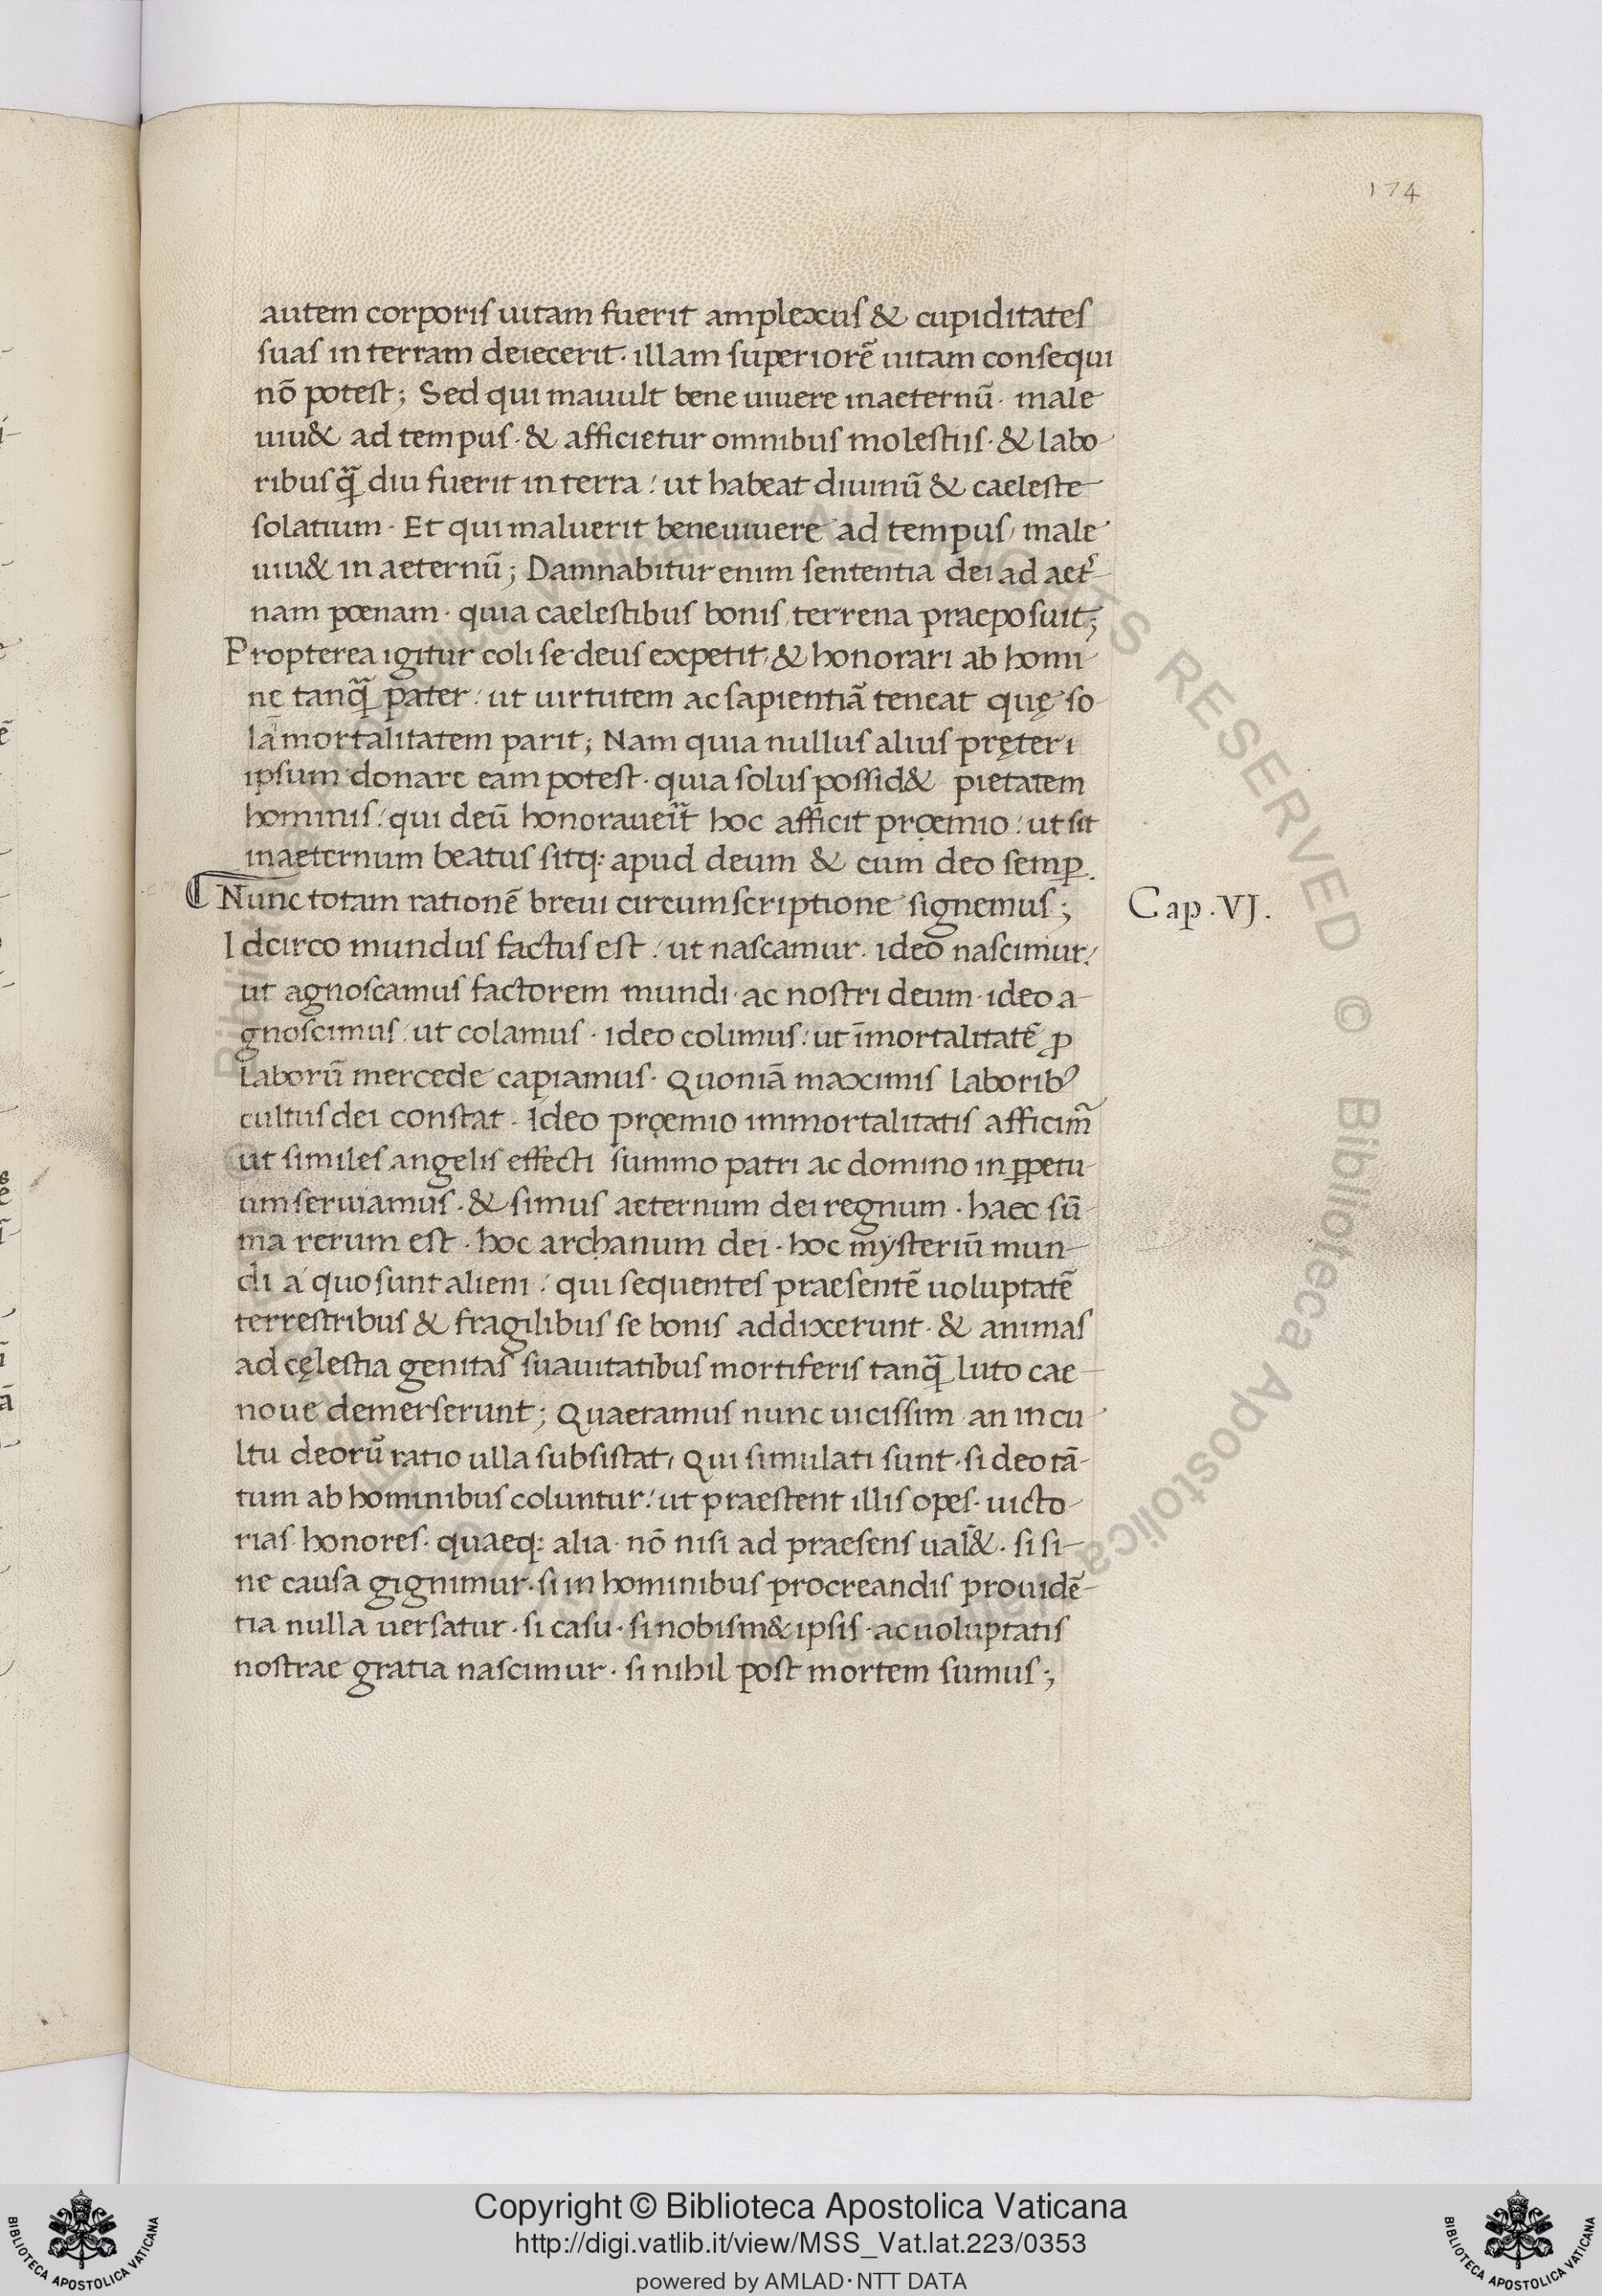 174
autem corporis uitam fuerit amplexus & cupiditates
suas in terram deiecerit · illam superiorē uitam consequi
nō potest ; Sed qui mauult bene uiuere inaeternū · male
uiu& ad tempus · & afficietur omnibus molestiis · & labo-
ribus qᷓ diu fuerit in terra : ut habeat diuinū & caeleste
solatium · Et qui maluerit bene uiuere ad tempus , male
uiu& in aeternū ; Damnabitur enim sententia dei ad aet̓-
nam poenam · quia caelestibus bonis , terrena praeposuit ;
Propterea igitur coli se deus expetit , & honorari ab homi-
ne tanqᷓ pater : ut uirtutem ac sapientiā teneat quę so-
lā mortalitatem parit ; Nam quia nullus alius pręter i
ipsum donare eam potest · quia solus possid& pietatem
hominis : qui deū honorauerit hoc afficit prǫemio : ut sit
inaeternum beatus sitq: apud deum & cum deo semꝑ .
Nunc totam rationē breui circumscriptione signemus ;
Cap . VJ .
Idcirco mundus factus est : ut nascamur · ideo nascimur :
ut agnoscamus factorem mundi · ac nostri deum · ideo a-
gnoscimus : ut colamus · ideo colimus : ut īmortalitatē ꝓ
laborū mercede capiamus · Quoniā maximis laborib⁹
cultus dei constat · Ideo prǫemio immortalitatis afficimᷓ
ut similes angelis effecti summo patri ac domino in ꝑpetu-
um seruiamus · & simus aeternum dei regnum · haec sū-
ma rerum est · hoc archanum dei · hoc mysteriū mun-
di a quo sunt alieni : qui sequentes praesentē uoluptatē
terrestribus & fragilibus se bonis addixerunt · & animas
ad cęlestia genitas suauitatibus mortiferis tanqᷓ luto cae-
noue demerserunt ; Quaeramus nunc uicissim an in cu-
ltu deorū ratio ulla subsistat , Qui simulati sunt · si deo tā-
tum ab hominibus coluntur : ut praestent illis opes · uicto-
rias honores · quaeq: alia · nō nisi ad praesens ual̄& · si si-
ne causa gignimur · si in hominibus procreandis prouidē-
tia nulla uersatur · si casu · si nobism& ipsis · ac uoluptatis
nostrae gratia nascimur · si nihil post mortem sumus ;
Copyright © Biblioteca Apostolica Vaticana
http://digi.vatlib.it/view/MSS_Vat.lat.223/0353
powered by AMLAD·NTT DATA
BIBLIOTECA APOSTOLICA VATICANA
BIBLIOTECA APOSTOLICA VATICANA